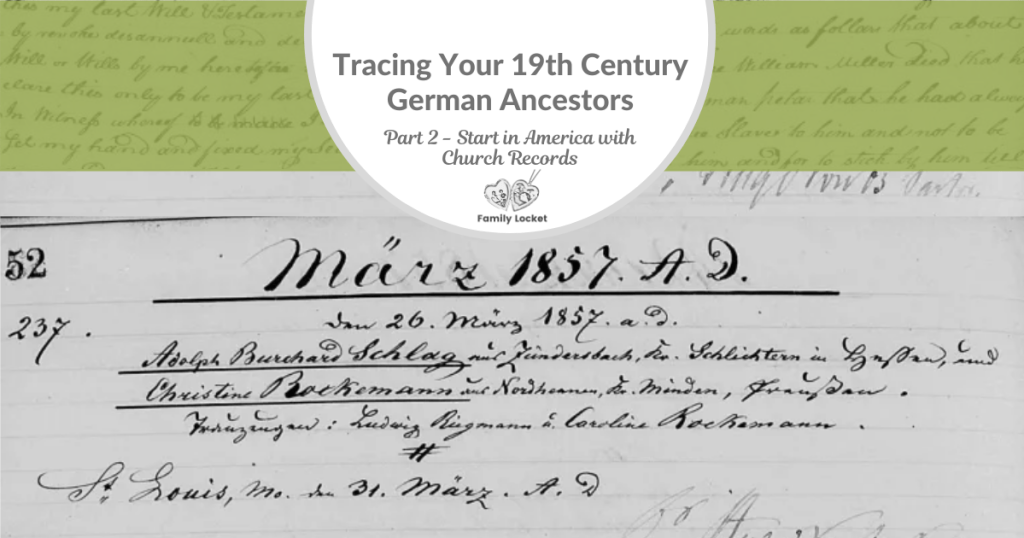 this my last Will & Testame
by revoke disannull and de
Will or Wills by me
clare this only to be my last
In Witness whereof
Set my hand and fixed my
Tracing Your 19th Century
German Ancestors
Part 2 – Start in America with
Church Records
Family Locket
words as follows that about
William Miller Deed that h
man that he had alway
to him and not to be
him and for to stick by him till
52
März 1857. A. D.
237.
den 26. März 1857. a. d.
Adolph Burchard Schlag aus Zündersbach, Kr. Schlichtern in Hessen, und
Christine Rockemann aus Nordhemmen, Kr. Minden, Preußen.
Trauzeugen: Ludwig Riegmann u. Caroline Rockemann.
#
St. Louis, Mo. den 31. März. A. D